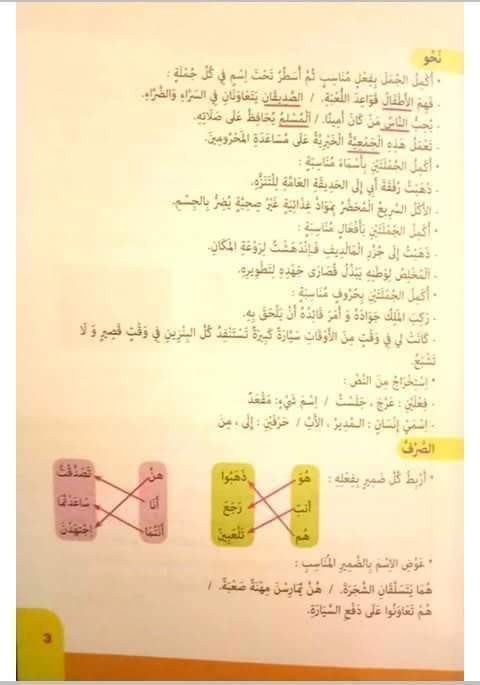 نَحْو
• أُكْمِلُ الجُمَلَ بِفِعْلٍ مُنَاسِبٍ ثُمَّ أُسَطِّرُ تَحْتَ اِسْمٍ فِي كُلِّ جُمْلَةٍ :
. فَهِمَ الأَطْفَالُ قَوَاعِدَ اللُّعْبَةِ. / الصَّدِيقَانِ يَتَعَاوَنَانِ فِي السَّرَّاءِ وَالضَّرَّاءِ.
. يُحِبُّ النَّاسُ مَنْ كَانَ أَمِينًا. / اَلْمُسْلِمُ يُحَافِظُ عَلَى صَلَاتِهِ.
. تَعْمَلُ هَذِهِ الجَمْعِيَّةُ الخَيْرِيَّةُ عَلَى مُسَاعَدَةِ المَحْرُومِينَ.
• أُكْمِلُ الجُمْلَتَيْنِ بِأَسْمَاءَ مُنَاسِبَةٍ :
. ذَهَبْتُ رُفْقَةَ أَبِي إِلَى الحَدِيقَةِ العَامَّةِ لِلتَّنَزُّهِ.
. الأَكْلُ السَّرِيعُ المُحَضَّرُ بِمَوَادَّ غِذَائِيَّةٍ غَيْرِ صِحِّيَّةٍ يُضِرُّ بِالجِسْمِ.
• أُكْمِلُ الجُمْلَتَيْنِ بِأَفْعَالٍ مُنَاسِبَةٍ :
. ذَهَبْتُ إِلَى جُزُرِ المَالْدِيفِ فَانْدَهَشْتُ لِرَوْعَةِ المَكَانِ.
. اَلْمُخْلِصُ لِوَطَنِهِ يَبْذُلُ قُصَارَى جَهْدِهِ لِتَطْوِيرِهِ.
• أُكْمِلُ الجُمْلَتَيْنِ بِحُرُوفٍ مُنَاسِبَةٍ :
. رَكِبَ المَلِكُ جَوَادَهُ وَ أَمَرَ قَائِدَهُ أَنْ يَلْحَقَ بِهِ.
. كَانَتْ لِي فِي وَقْتٍ مِنَ الأَوْقَاتِ سَيَّارَةٌ كَبِيرَةٌ تَسْتَنْفِدُ كُلَّ البِنْزِينِ فِي وَقْتٍ قَصِيرٍ وَ لَا
تَشْبَعُ.
* اِسْتِخْرَاجٌ مِنَ النَّصِّ :
. فِعْلَيْنِ : عَرَجَ ، جَلَسْتُ / اِسْمَ شَيْءٍ: مَقْعَدٌ
. اِسْمَيْ إِنْسَانٍ : المُدِيرُ ، الأَبُ / حَرْفَيْنِ : إِلَى ، مِنَ
الصَّرْفُ
* أَرْبِطُ كُلَّ ضَمِيرٍ بِفِعْلِهِ :
هُوَ ذَهَبُوا هُنَّ تَصَدَّقْتُ
أَنْتِ رَجَعَ أَنَا سَاعَدْتُمَا
هُم تَلْعَبِينَ أَنْتُمَا اِجْتَهَدْنَ
* عَوِّضِ الاِسْمَ بِالضَّمِيرِ المُنَاسِبِ :
هُمَا يَتَسَلَّقَانِ الشَّجَرَةَ. / هُنَّ يُمَارِسْنَ مِهْنَةً صَعْبَةً. /
هُمْ تَعَاوَنُوا عَلَى دَفْعِ السَّيَّارَةِ.
3